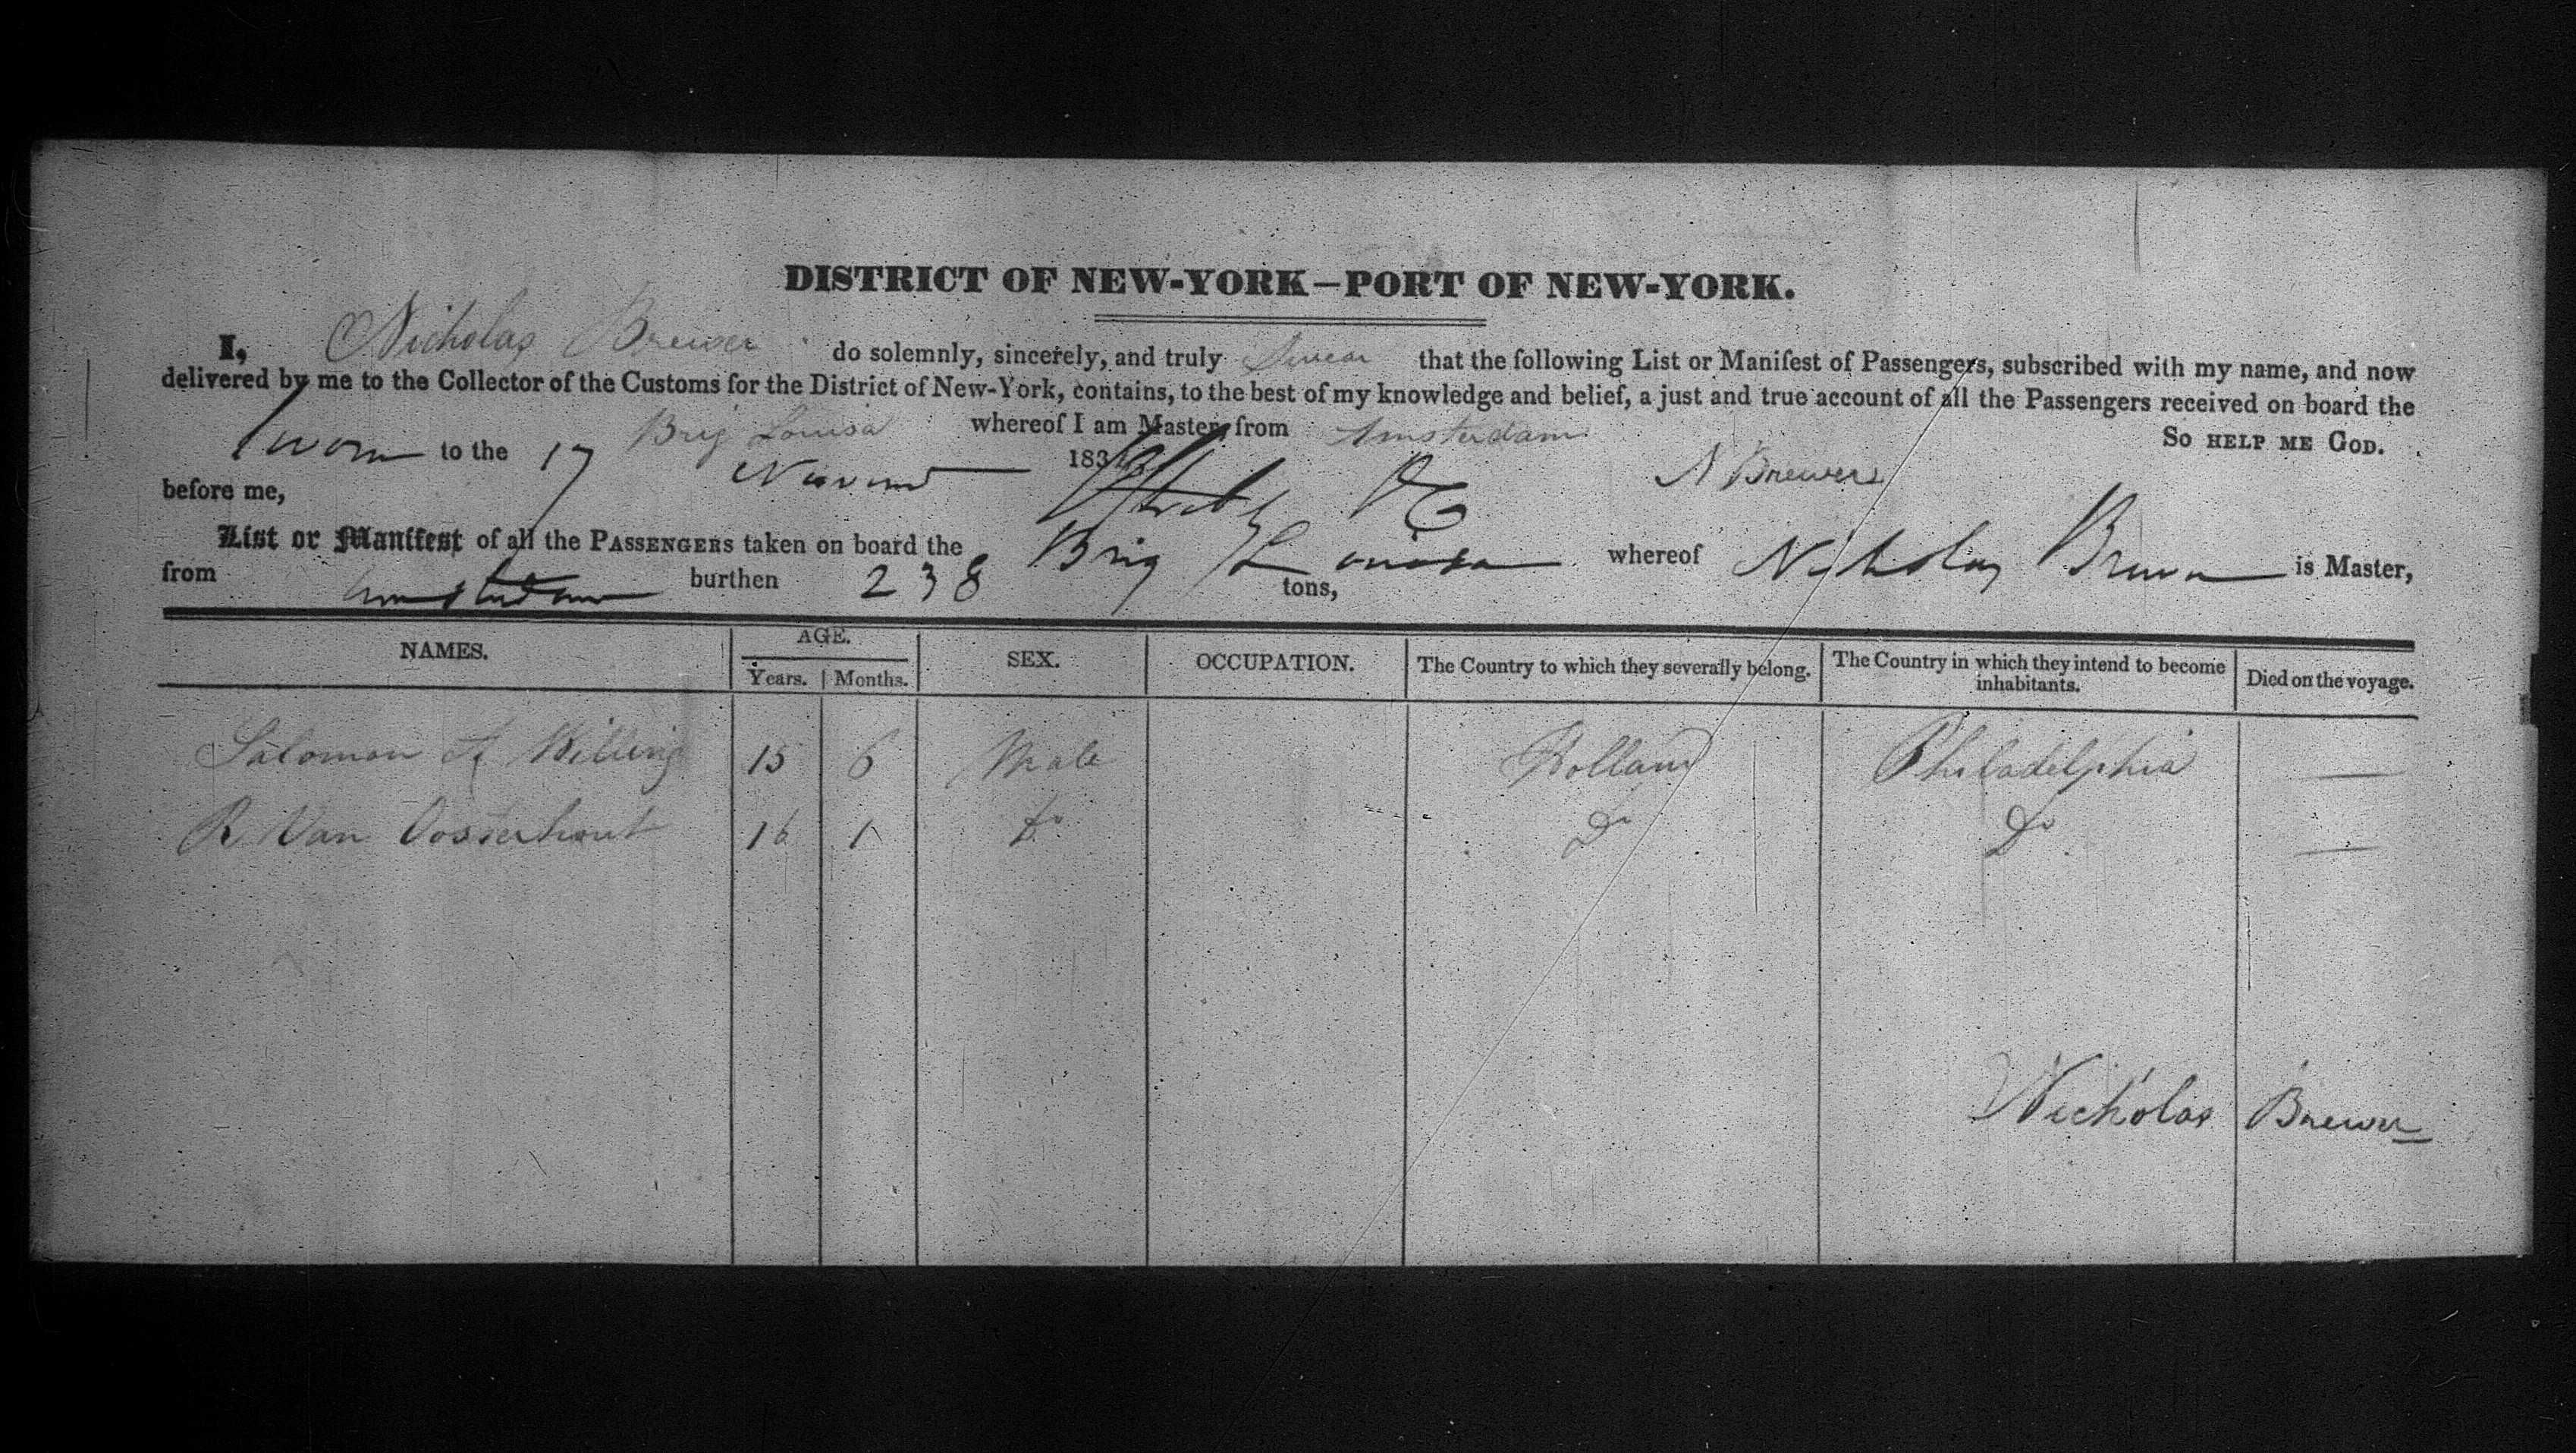 DISTRICT OF NEW-YORK—PORT OF NEW-YORK.
I, Nicholas Brewer do solemnly, sincerely, and truly Swear that the following List or Manifest of Passengers, subscribed with my name, and now
delivered by me to the Collector of the Customs for the District of New-York, contains, to the best of my knowledge and belief, a just and true account of all the Passengers received on board the
Brig Louisa whereof I am Master, from Amsterdam
So HELP ME GOD.
Sworn to the 17 183
N Brewer
before me,
List or Manifest of all the PASSENGERS taken on board the Brig Louisa whereof Nicholas Brewer is Master,
from Amsterdam burthen 238 tons,
NAMES. AGE. SEX. OCCUPATION. The Country to which they severally belong. The Country in which they intend to become inhabitants. Died on the voyage.
Years. Months.
Salomon A 15 6 Male Holland Philadelphia —
R Van Oosterhout 16 1 Do Do Do —
Nicholas Brewer